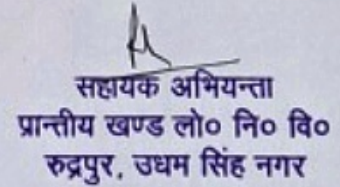 सहायक अभियन्ता
प्रान्तीय खण्ड लो० नि० वि०
रुद्रपुर, उधम सिंह नगर